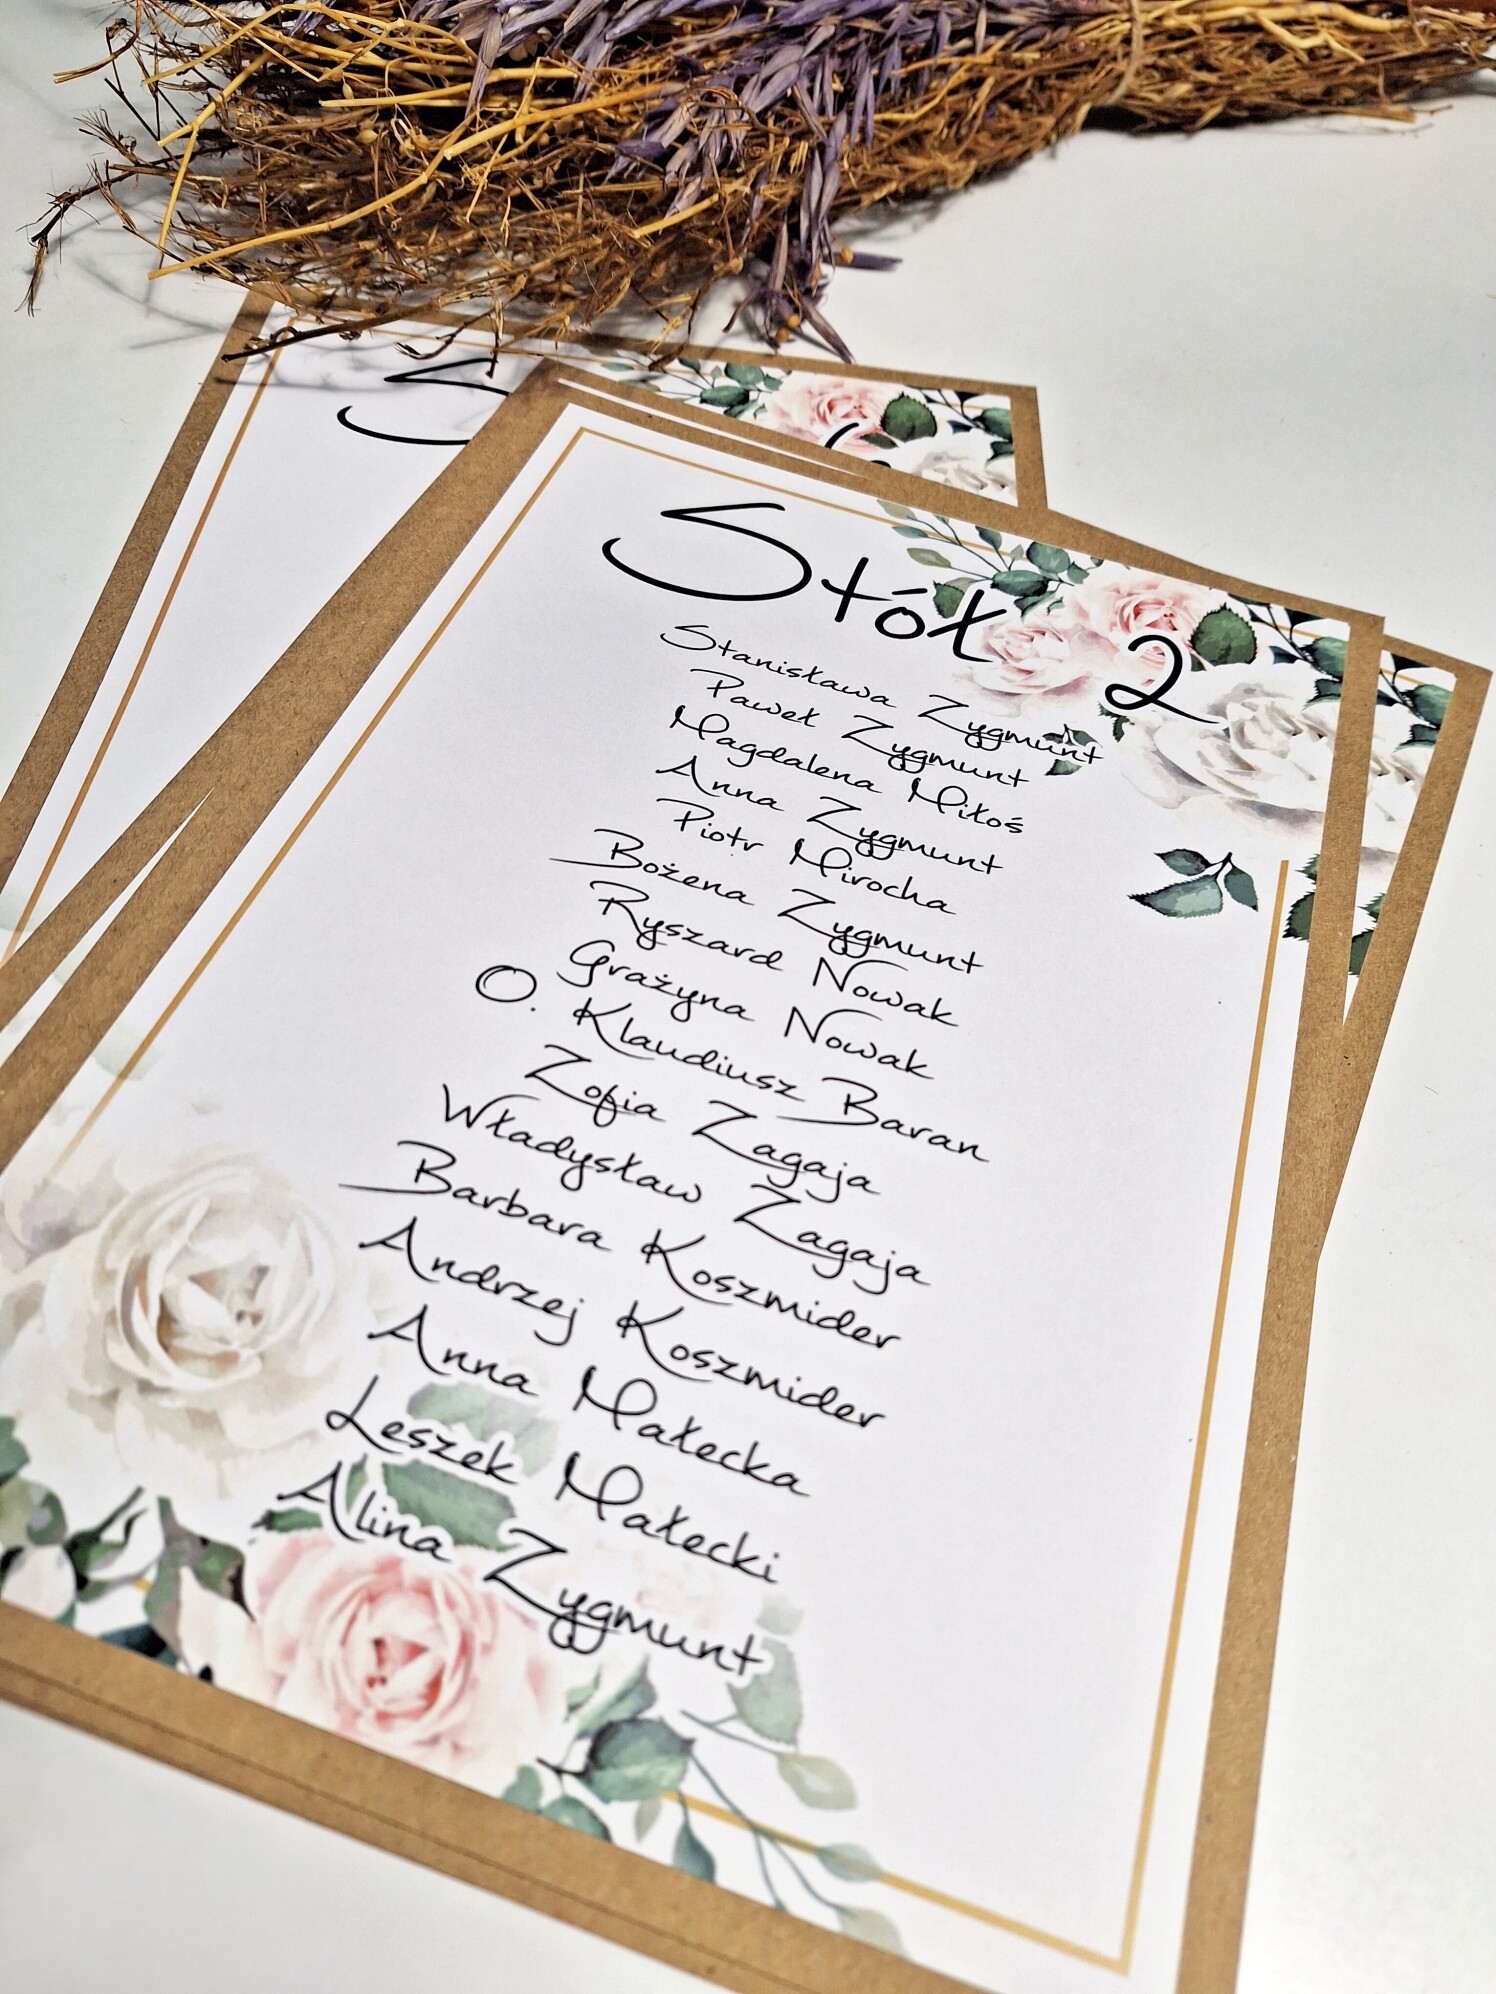 Stół 2
Stanisława Zygmunt
Paweł Zygmunt
Magdalena Miłoś
Anna Zygmunt
Piotr Mirocha
Bożena Zygmunt
Ryszard Nowak
Grażyna Nowak
O. Klaudiusz Baran
Zofia Zagaja
Władysław Zagaja
Barbara Koszmider
Andrzej Koszmider
Anna Małecka
Leszek Małecki
Alina Zygmunt